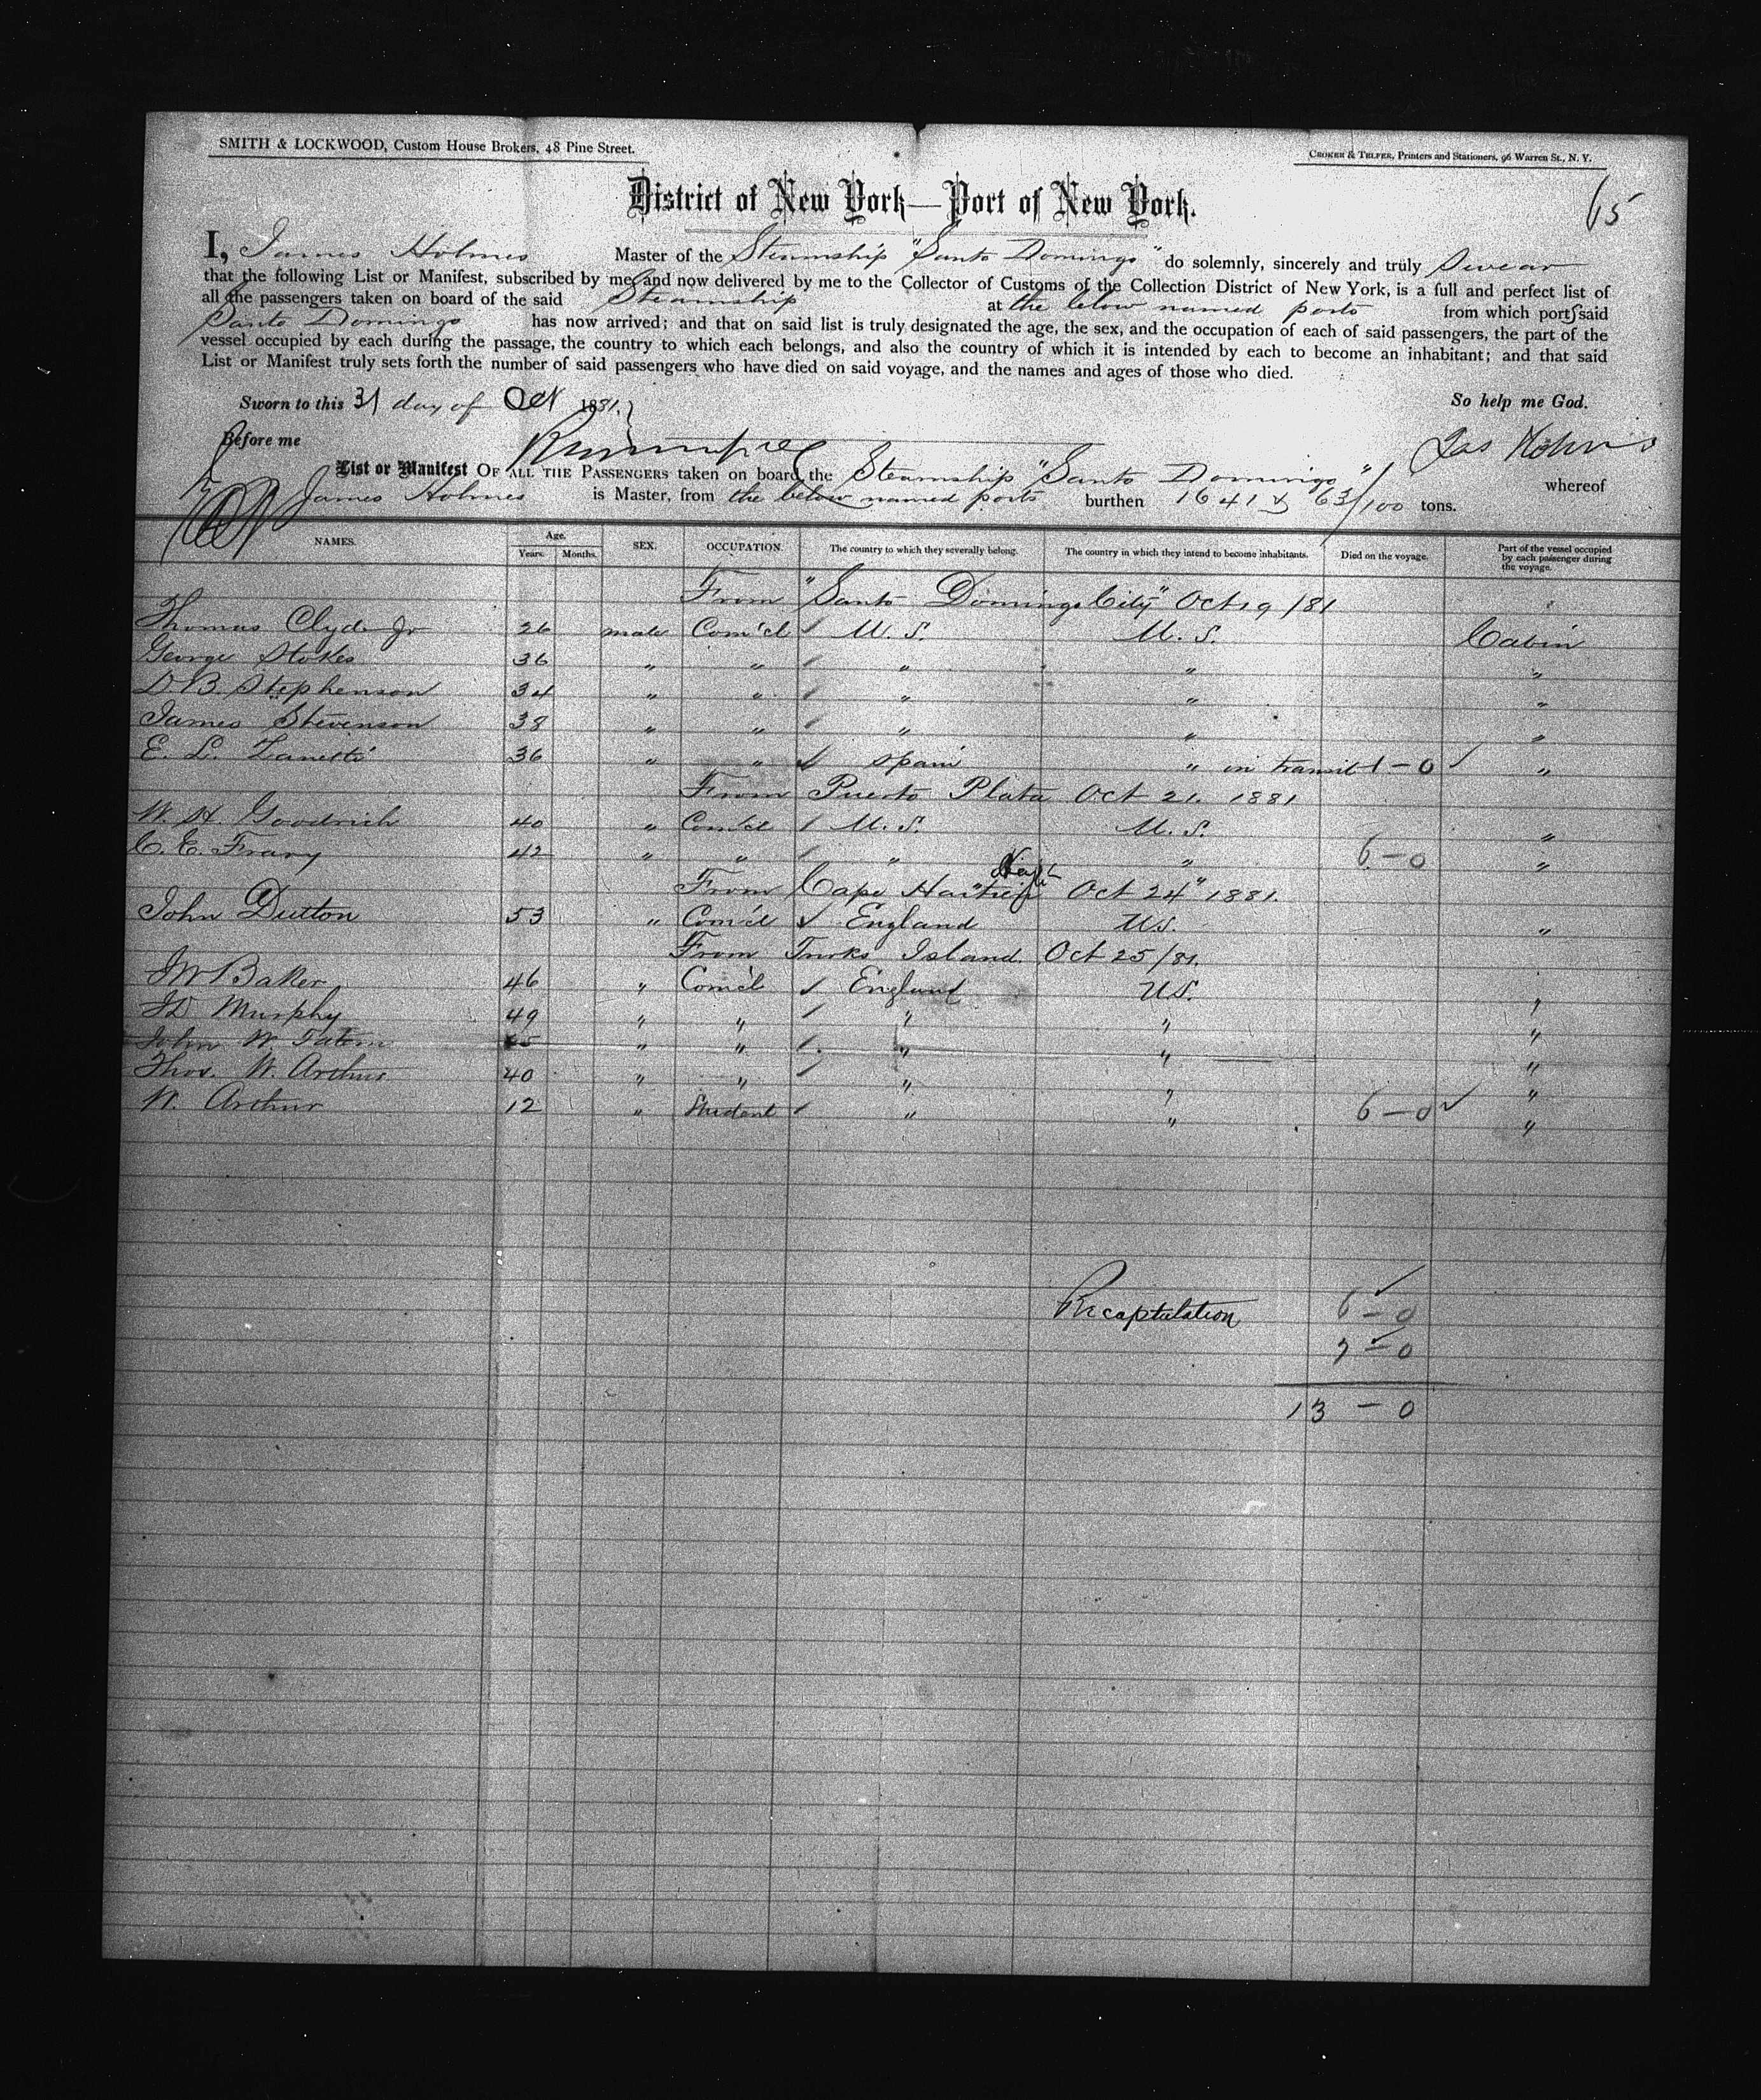 SMITH & LOCKWOOD, Custom House Brokers, 48 Pine Street.
CROKER & TELFER, Printers and Stationers, 96 Warren St., N. Y.
65
District of New York—Port of New York.
I, James Holmes Master of the Steamship "Santo Domingo" do solemnly, sincerely and truly swear
that the following List or Manifest, subscribed by me, and now delivered by me to the Collector of Customs of the Collection District of New York, is a full and perfect list of
all the passengers taken on board of the said Steamship at the below named ports from which ports said
Santo Domingo has now arrived; and that on said list is truly designated the age, the sex, and the occupation of each of said passengers, the part of the
vessel occupied by each during the passage, the country to which each belongs, and also the country of which it is intended by each to become an inhabitant; and that said
List or Manifest truly sets forth the number of said passengers who have died on said voyage, and the names and ages of those who died.
Sworn to this 31 day of Oct 1881. So help me God.
Before me Jas Holmes
List or Manifest OF ALL THE PASSENGERS taken on board the Steamship "Santo Domingo" whereof
James Holmes is Master, from the below named ports burthen 1641 & 63/100 tons.
NAMES. Age. Years. Months. SEX. OCCUPATION. The country to which they severally belong. The country in which they intend to become inhabitants. Died on the voyage. Part of the vessel occupied by each passenger during the voyage.
From "Santo Domingo City" Oct 19/81
Thomas Clyde Jr 26 male Com'cl U. S. U. S. Cabin
George Stokes 36 " " " " "
D. B. Stephenson 34 " " " " "
James Stevenson 38 " " " " "
E. L. 36 " " Spain " in transit 1-0 "
From Puerto Plata Oct 21. 1881
W. H. Goodrich 40 " Com'cl U. S. U. S. "
C. E. Frary 42 " " " " 6-0 "
From Cape Hayti Oct 24" 1881.
John Dutton 53 " Com'cl England U.S. "
From Turks Island. Oct 25/81.
J W Baker 46 " Com'cl England U.S. "
Murphy 49 " " " " "
John W. Tatem " " " " "
Thos. W. Arthur 40 " " " " "
W. Arthur 12 " Student " " 6-0 "
Recaptulation 6-0
7-0
13-0